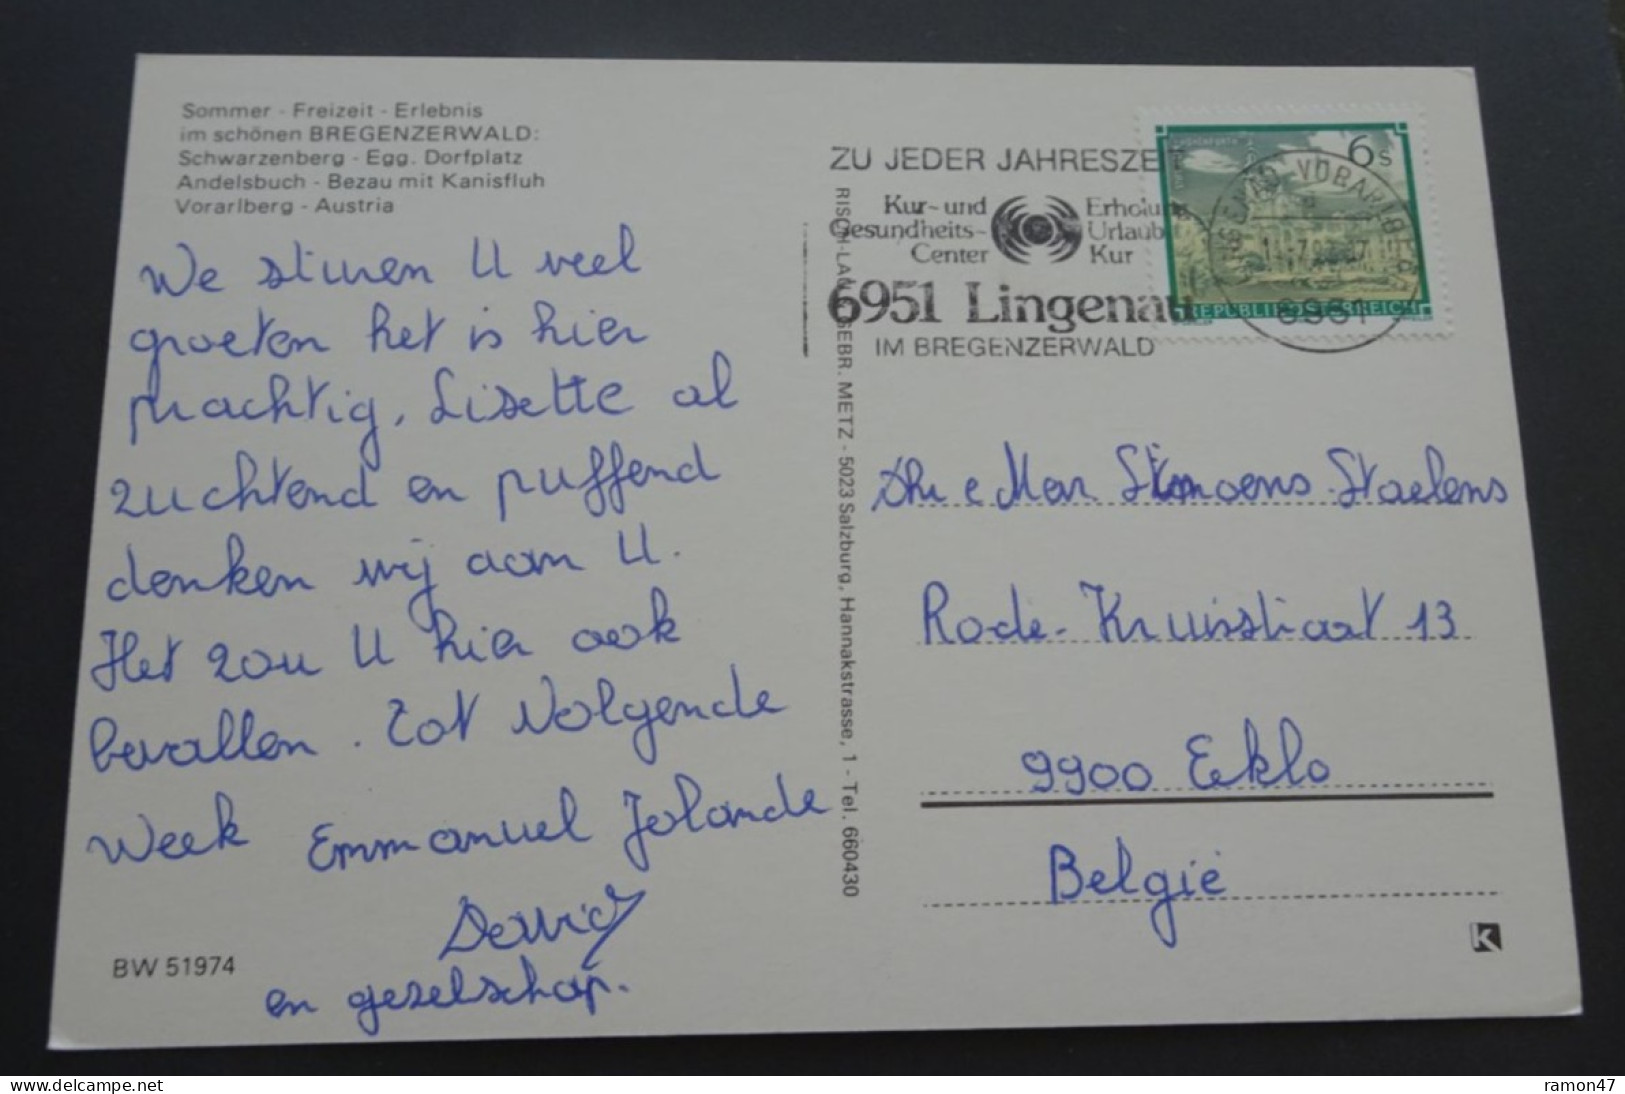 Sommer - Freizeit - Erlebnis
im schönen BREGENZERWALD:
Schwarzenberg - Egg. Dorfplatz
Andelsbuch - Bezau mit Kanisfluh
Vorarlberg - Austria
We sturen U veel
groeten het is hier
prachtig, Lisette al
zuchtend en puffend
denken wij aan U.
Het zou U hier ook
bevallen. Tot Volgende
Week Emmanuel Jolande
David
en gezelschap.
BW 51974
RISCH-LAU GEBR. METZ - 5023 Salzburg, Hannakstrasse, 1 - Tel. 660430
ZU JEDER JAHRESZE
Kur- und
Gesundheits-
Center
Erholun
Urlaub
Kur
6951 Lingenau
IM BREGENZERWALD
6s
REPUBLIK ÖSTERREICH
VORARLBERG
6951
Mer Simoens Staelens
Rode-Kruisstraat 13
9900 Eeklo
België
K
delcampe.net
ramon47